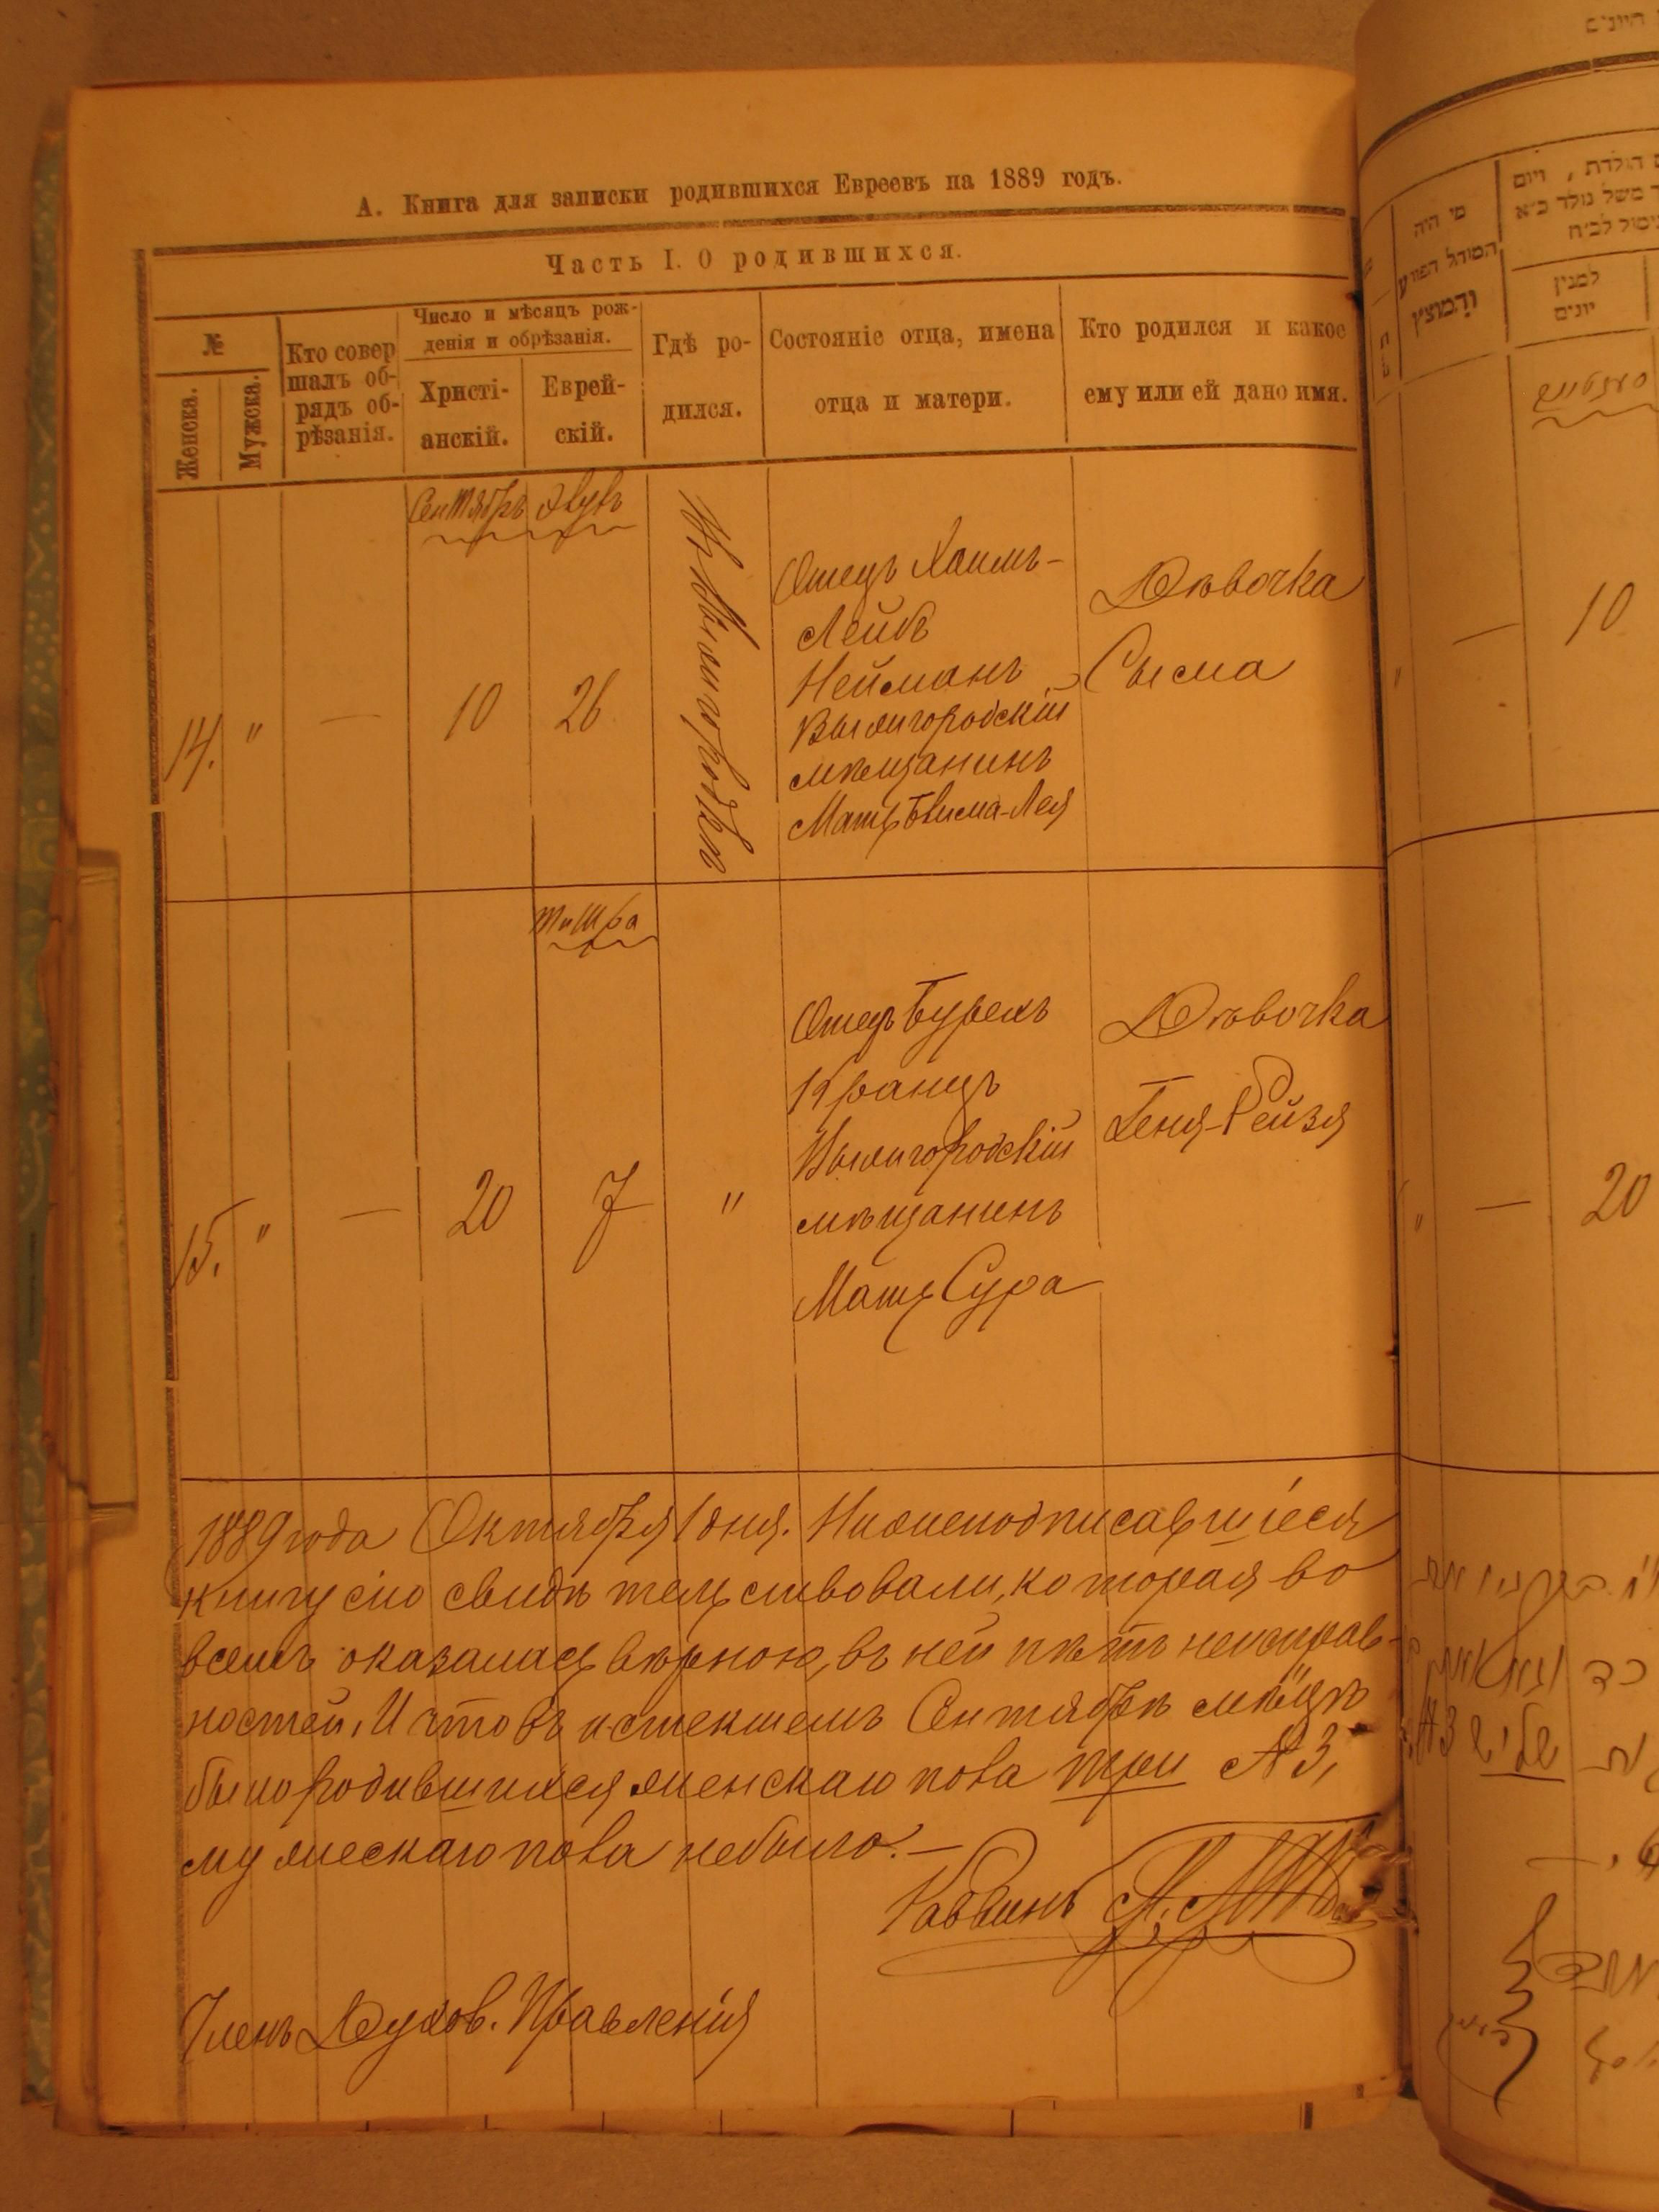 А. Книга для записки родившихся Евреевъ на 1889 годъ.
Часть I. О родившихся.
№
Женска.
Мужска.
Кто совер
шалъ об-
рядъ об-
рѣзанія.
Число и мѣсяцъ рож-
денія и обрѣзанія.
Христі-
анскій.
Еврей-
скій.
Гдѣ ро-
дился.
Состояніе отца, имена
отца и матери.
Кто родился и какое
ему или ей дано имя.
Сентябрь Элулъ
14. " — 10 26
Отецъ Хаимъ-
Лейбъ
Нейманъ
Вышгородскій
мѣщанинъ
Мать
Дѣвочка
Сысма
Тишра
15. " — 20 7 "
Отецъ
Кранцъ
мѣщанинъ
Мать Сура
Дѣвочка
Геня-Рейзя
1889 года Октября 1 дня. Нижеподписавшіеся
книгу сію свидѣтельствовали, которая во
всемъ оказалась вѣрною, въ ней нѣтъ неисправ-
ностей, И что въ истекшемъ Сентябрѣ мѣ-цѣ
было родившихся женскаго пола три № 3,
мужескаго пола небыло. —
Раввинъ
Членъ Духов. Правленія
מי היה
המוהל הפורע
והמוצץ
למנין
יונים
— 10
" — 20